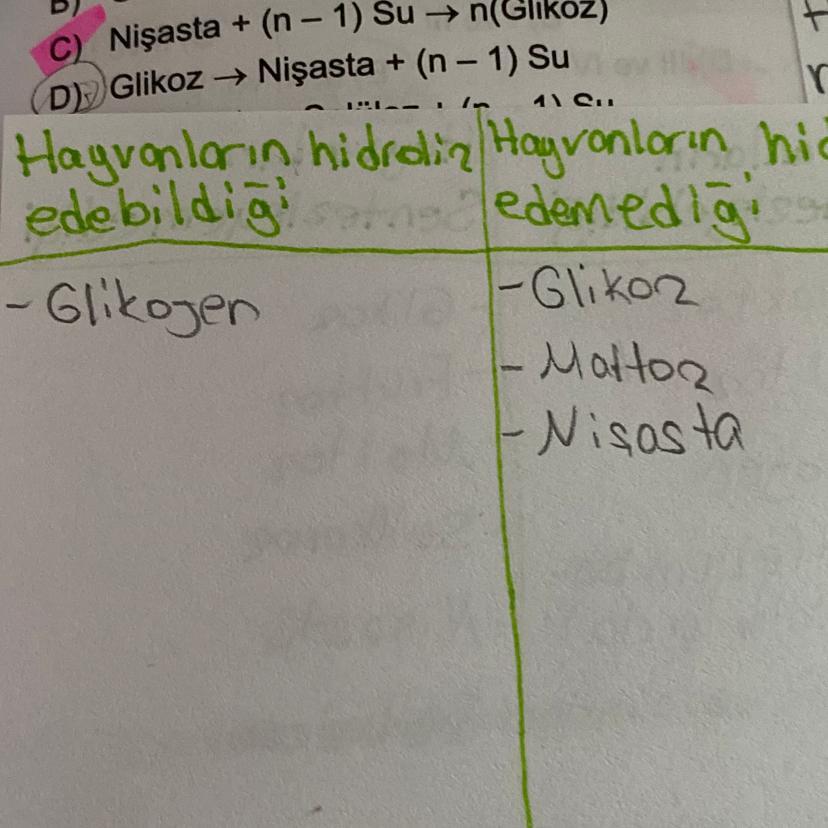 B)
C) Nişasta + (n – 1) Su → n(Glikoz)
D) Glikoz → Nişasta + (n – 1) Su
Hayvanların hidroliz
edebildiği
Hayvanların hid
edemediği
- Glikojen
- Glikoz
- Maltoz
- Nişasta